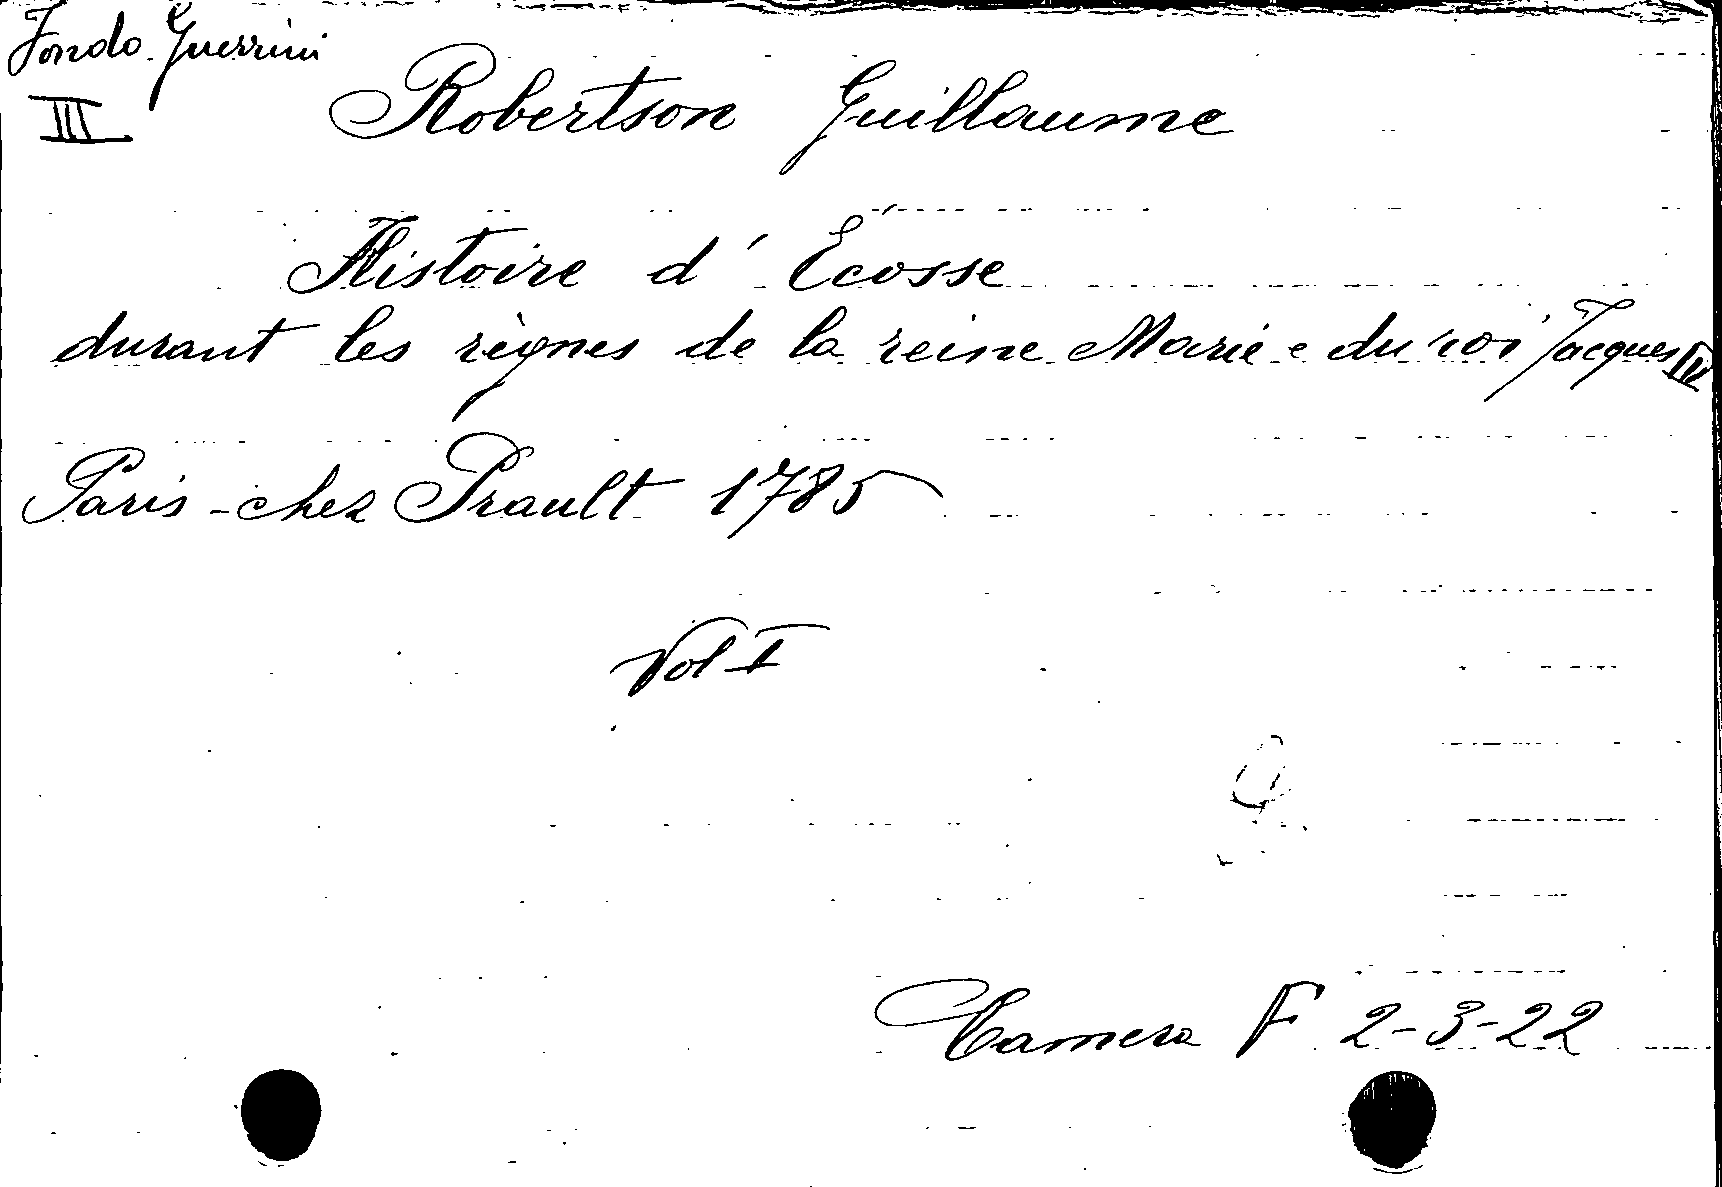 Fondo Guerrini
III
Robertson Guillaume
Histoire d' Écosse
durant les règnes de la reine Marie e du roi Jacques IV
Paris - chez Prault 1785
Vol I
Camera F 2-3-22